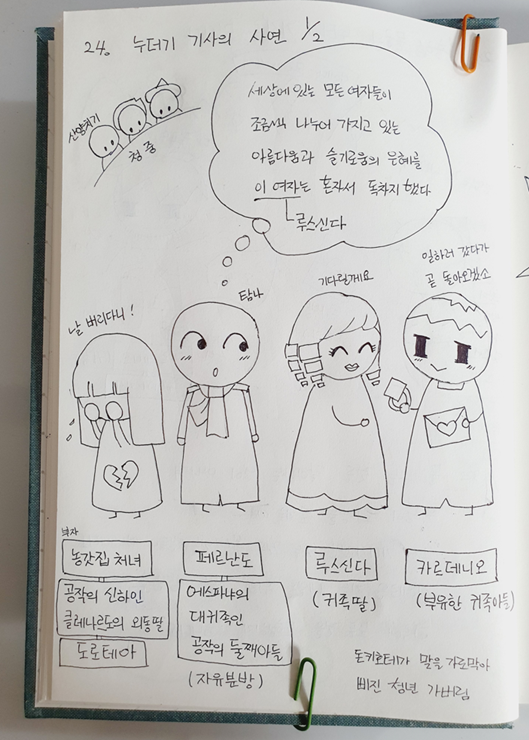 24. 누더기 기사의 사연 1/2
산양치기
청중
세상에 있는 모든 여자들이
조금씩 나누어 가지고 있는
아름다움과 슬기로움의 은혜를
이 여자는 혼자서 독차지 했다
루스신다
날 버리다니!
탐나
기다릴게요
일하러 갔다가
곧 돌아오겠소
여자
농갓집 처녀
공작의 신하인
클레나르도의 외동딸
도로테아
페르난도
에스파냐의
대귀족인
공작의 둘째아들
(자유분방)
루스신다
(귀족딸)
카르데니오
(부유한 귀족아들)
돈키호테가 말을 가로막아
삐진 청년 가버림